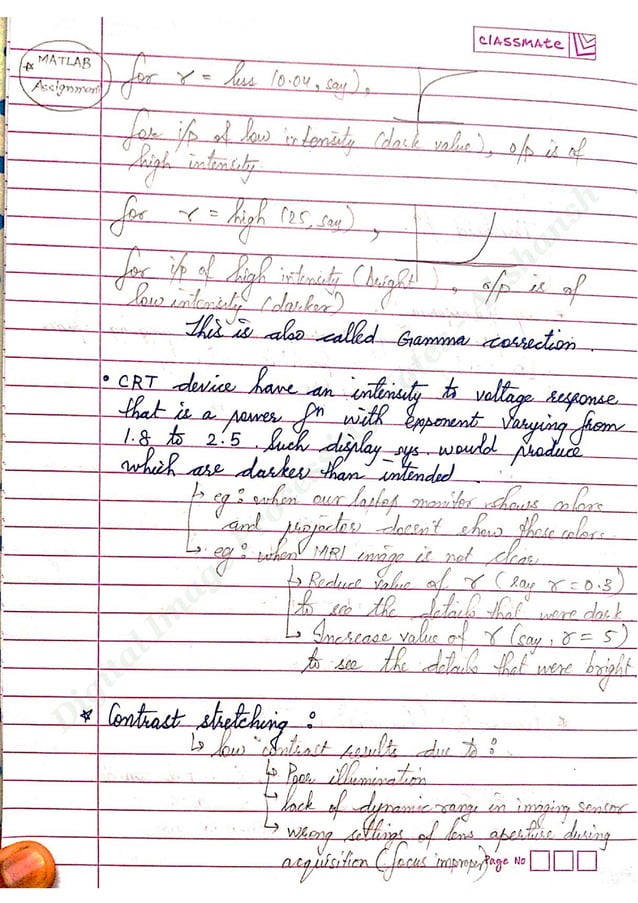 classmate
* MATLAB
Assignment
for r = less (0.04, say),
for i/p of low intensity (dark value), o/p is of
high intensity.
for r = high (25, say),
for i/p of high intensity (bright), o/p is of
low intensity (darker)
This is also called Gamma correction.
• CRT device have an intensity to voltage response
that is a power fⁿ with exponent varying from
1.8 to 2.5. Such display sys. would produce
which are darker than intended.
↳ eg: when our laptop monitor shows colors
and projector doesn't show those colors.
↳ eg: when MRI image is not clear
↳ Reduce value of r (say r = 0.3)
to see the details that were dark
↳ Increase value of r (say, r = 5)
to see the details that were bright
* Contrast stretching :
↳ low contrast results due to :
↳ Poor illumination
↳ lack of dynamic range in imaging sensor
↳ wrong settings of lens aperture during
acquisition (focus improper)
Page No
Digital Image Processing
Akshansh